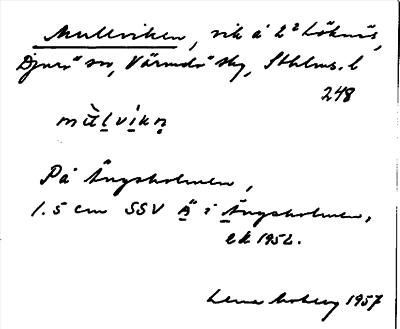 Mullviken, vik å L:a Löknäs,
Djurö sn, Värmdö skg, Sthlms. l
248
mùlvikn̥
På Ängsholmen,
1.5 cm SSV Ä i Ängsholmen,
ek 1952.
Lena Moberg 1957